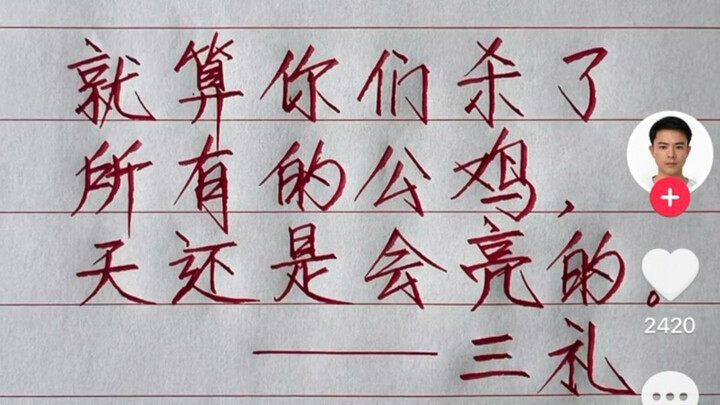 就算你们杀了
所有的公鸡，
天还是会亮的。
——三礼
2420